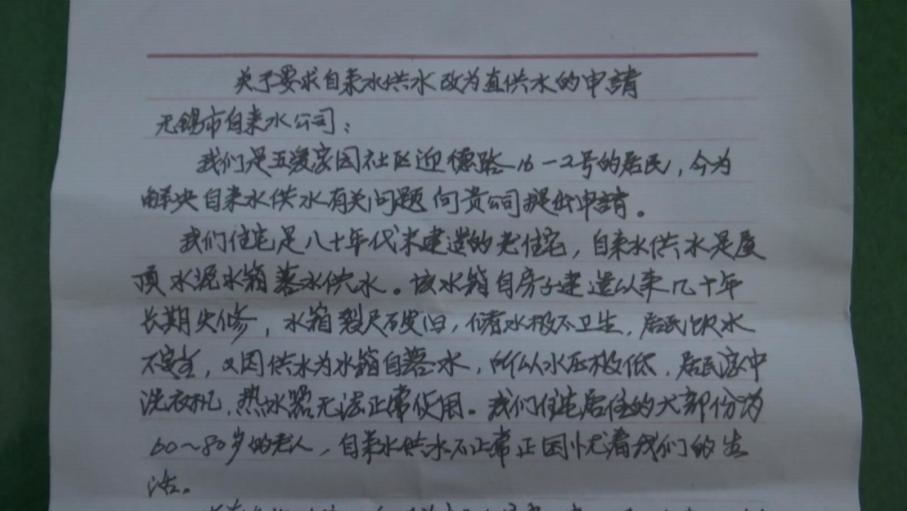 关于要求自来水供水改为直供水的申請
无锡市自来水公司：
我们是五爱家园社区迎德路16-2号的居民，今为
解决自来水供水有关问题向贵公司提出申請。
我们住宅是八十年代末建造的老住宅，自来水供水是屋
顶水泥水箱蓄水供水。该水箱自房子建造以来几十年
长期失修，水箱裂尺破旧，储水极不卫生，居民饮水
不安全，又因供水为水箱自落水，所以水压极低，居民家中
洗衣机，热水器无法正常使用。我们住宅居住的大部份为
60～80岁的老人，自来水供水不正常正困忧着我们的生
活。